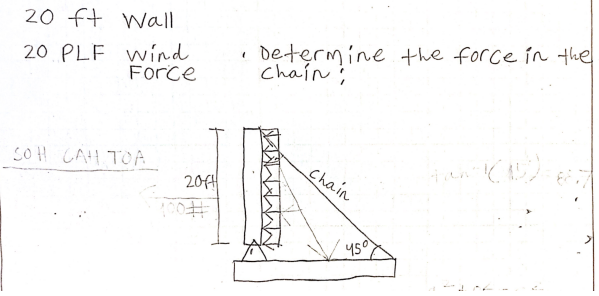 20 ft Wall
20 PLF Wind Force
• Determine the force in the chain:
SOH CAH TOA
20ft
chain
100#
45°